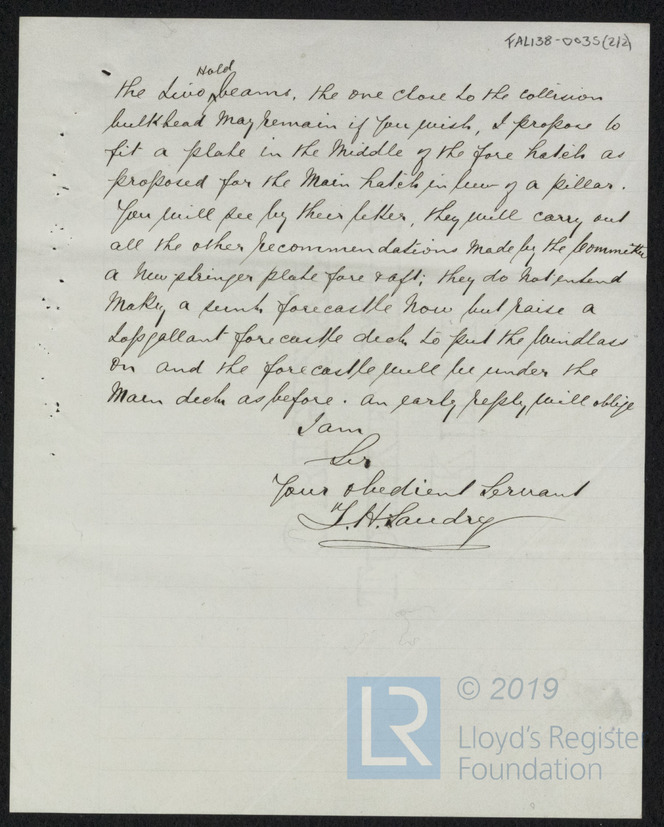 FAL138-0035(2/2)
Hold
the two beams, the one close to the collision
bulkhead may remain if you wish, I propose to
fit a plate in the Middle of the fore hatch as
proposed for the Main hatch in lieu of a pillar.
You will see by their letter, they will carry out
all the other recommendations made by the Committee
a New stringer plate fore & aft; they do not entend
Making a sunk forecastle Now but raise a
topgallant forecastle deck to put the Windlass
on and the forecastle will be under the
Main deck as before. an early reply will oblige
I am
Sir
Your obedient Servant
H.
© 2019
LR
Lloyd's Register
Foundation